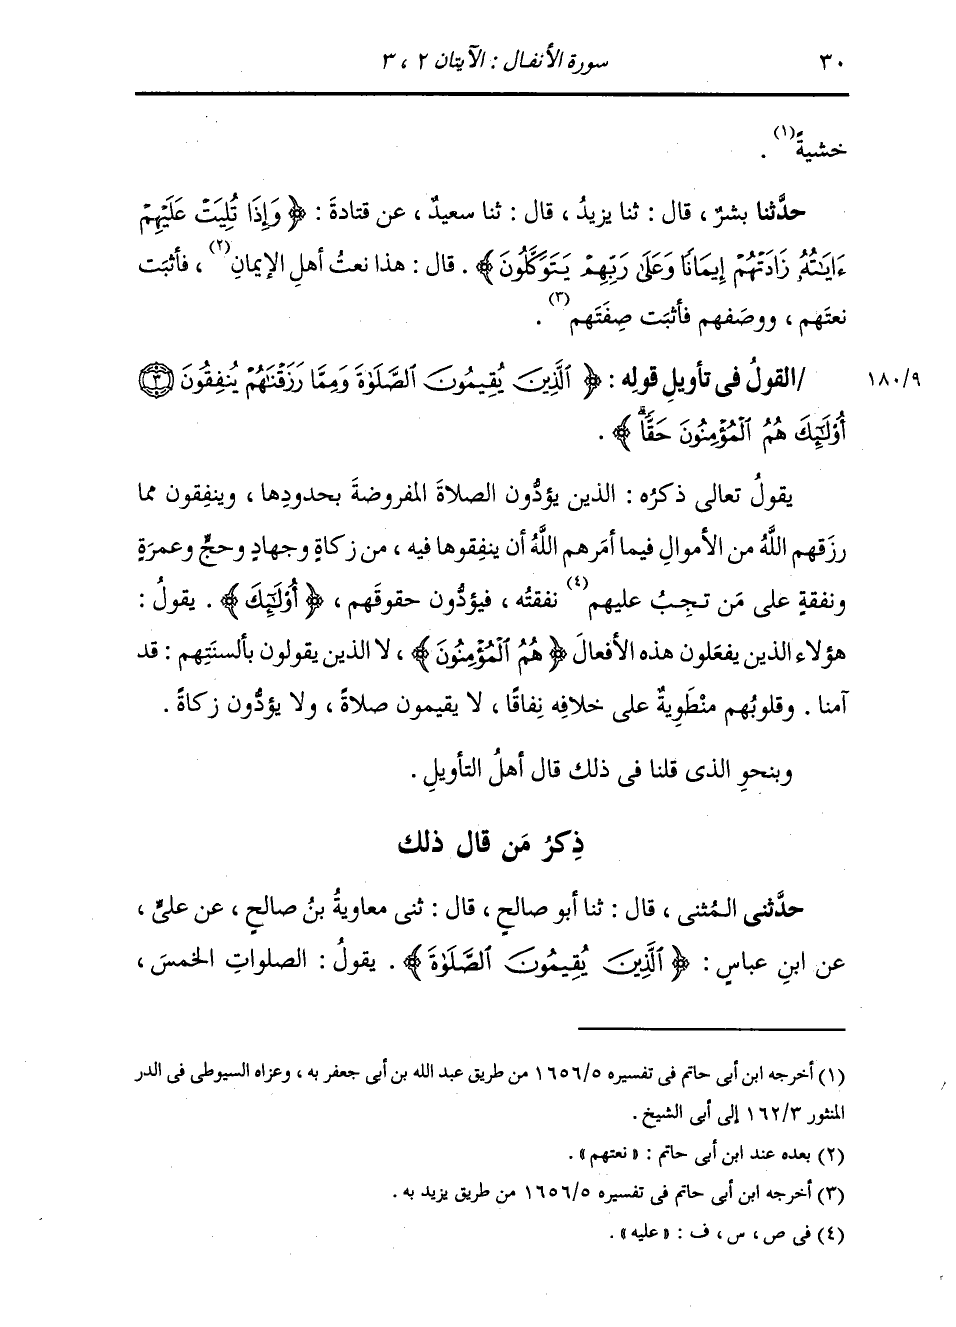 ٣٠ سورة الأنفال : الآيتان ٢ ، ٣
خشيةً(١) .
حدَّثنا بشرٌ ، قال : ثنا يزيدُ ، قال : ثنا سعيدٌ ، عن قتادةَ : ﴿ وَإِذَا تُلِيَتْ عَلَيْهِمْ
ءَايَـٰتُهُۥ زَادَتْهُمْ إِيمَـٰنًا وَعَلَىٰ رَبِّهِمْ يَتَوَكَّلُونَ ﴾ . قال : هذا نعتُ أهلِ الإيمانِ(٢) ، فأثبَت
نعتَهم ، ووصَفهم فأثبَت صِفَتَهم(٣) .
١٨٠/٩ /القولُ فى تأويلِ قولِه : ﴿ ٱلَّذِينَ يُقِيمُونَ ٱلصَّلَوٰةَ وَمِمَّا رَزَقْنَـٰهُمْ يُنفِقُونَ ٣
أُوْلَـٰٓئِكَ هُمُ ٱلْمُؤْمِنُونَ حَقًّاۚ ﴾ .
يقولُ تعالى ذكرُه : الذين يؤدُّون الصلاةَ المفروضةَ بحدودِها ، وينفِقون مما
رزَقهم اللَّهُ من الأموالِ فيما أمَرهم اللَّهُ أن ينفِقوها فيه ، من زكاةٍ وجهادٍ وحجٍّ وعمرَةٍ
ونفقةٍ على مَن تـجِـبُ عليهم(٤) نفقتُه ، فيؤدُّون حقوقَهم ، ﴿ أُوْلَـٰٓئِكَ ﴾ . يقولُ :
هؤلاء الذين يفعَلون هذه الأفعالَ ﴿ هُمُ ٱلْمُؤْمِنُونَ ﴾ ، لا الذين يقولون بألسنَتِهم : قد
آمنا . وقلوبُهم منْطَوِيةٌ على خلافِه نِفاقًا ، لا يقيمون صلاةً ، ولا يؤدُّون زكاةً .
وبنحوِ الذى قلنا فى ذلك قال أهلُ التأويلِ .
ذِكرُ مَن قال ذلك
حدَّثنى المُثنى ، قال : ثنا أبو صالحٍ ، قال : ثنى معاويةُ بنُ صالحٍ ، عن علىٍّ ،
عن ابنِ عباسٍ : ﴿ ٱلَّذِينَ يُقِيمُونَ ٱلصَّلَوٰةَ ﴾ . يقولُ : الصلواتِ الخمسَ ،
(١) أخرجه ابن أبى حاتم فى تفسيره ١٦٥٦/٥ من طريق عبد الله بن أبى جعفر به ، وعزاه السيوطى فى الدر
المنثور ١٦٢/٣ إلى أبى الشيخ .
(٢) بعده عند ابن أبى حاتم : « نعتهم » .
(٣) أخرجه ابن أبى حاتم فى تفسيره ١٦٥٦/٥ من طريق يزيد به .
(٤) فى ص ، س ، ف : « عليه » .